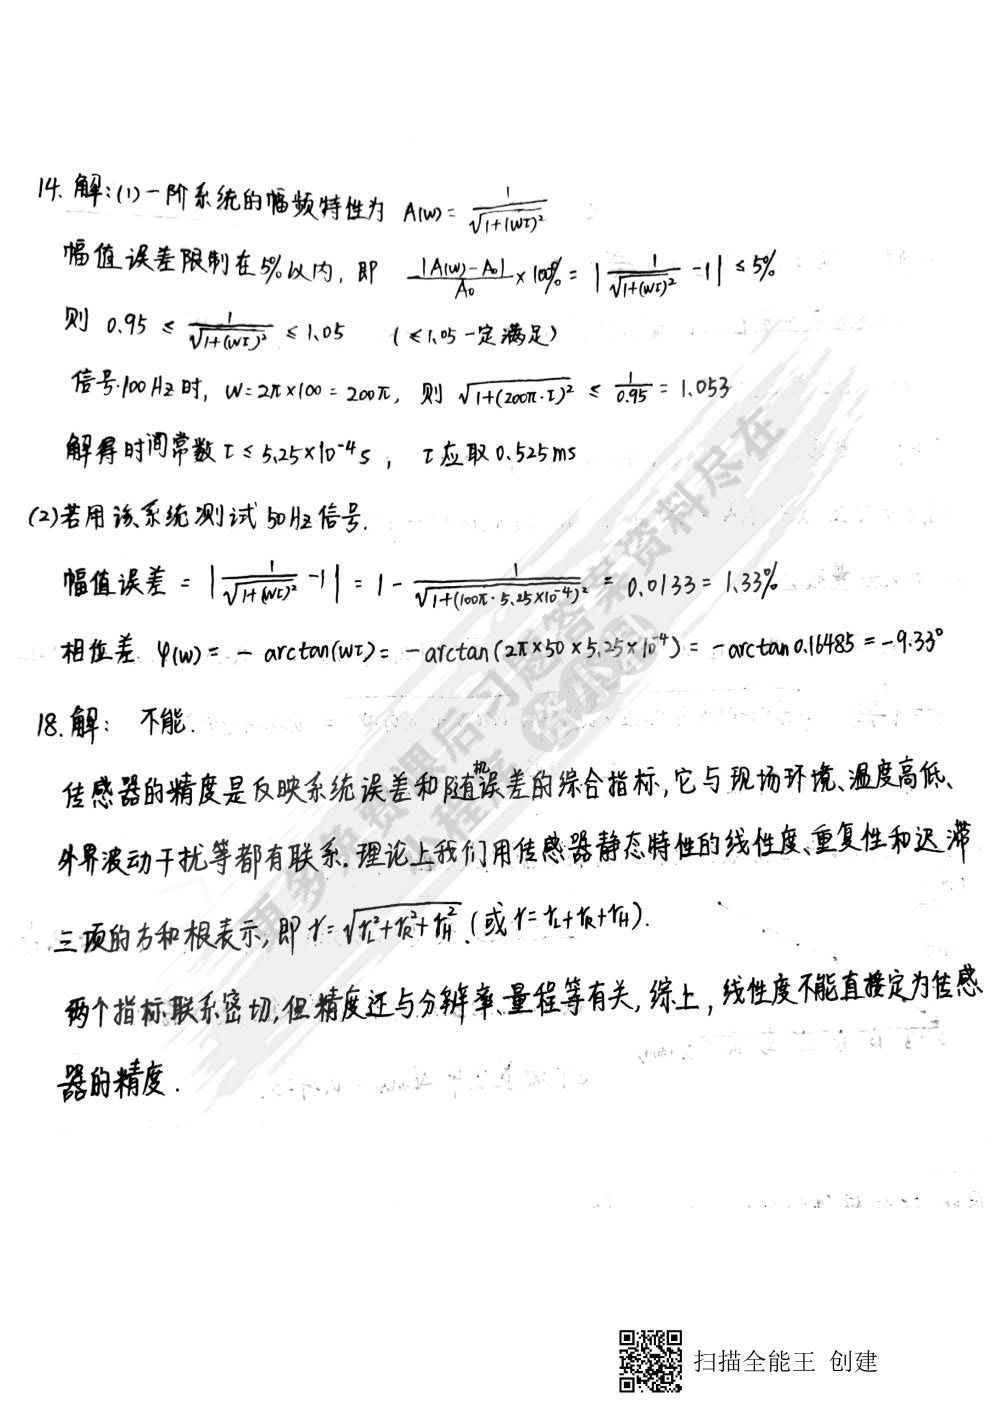 14. 解:(1)一阶系统的幅频特性为 A(w)= 1/√1+(wτ)²
幅值误差限制在5%以内, 即 |A(w)-A₀|/A₀ ×100% = | 1/√1+(wτ)² -1| ≤5%
则 0.95 ≤ 1/√1+(wτ)² ≤1.05 (≤1.05一定满足)
信号100Hz时, w=2π×100=200π, 则 √1+(200π·τ)² ≤ 1/0.95 = 1.053
解得时间常数τ≤5.25×10⁻⁴s, τ应取0.525ms
(2)若用该系统测试50Hz信号.
幅值误差 = | 1/√1+(wτ)² -1| = 1- 1/√1+(100π·5.25×10⁻⁴)² = 0.0133=1.33%
相位差 φ(w)= -arctan(wτ)= -arctan(2π×50×5.25×10⁻⁴)= -arctan0.16485=-9.33°
18.解: 不能.
传感器的精度是反映系统误差和随机误差的综合指标,它与现场环境、温度高低、
外界波动干扰等都有联系.理论上我们用传感器静态特性的线性度、重复性和迟滞
三项的方和根表示,即 r=√r_L²+r_R²+r_H².(或r=r_L+r_R+r_H).
两个指标联系密切,但精度还与分辨率、量程等有关,综上,线性度不能直接定为传感
器的精度.
更多免费课后习题答案资料尽在
小程序
扫描全能王 创建